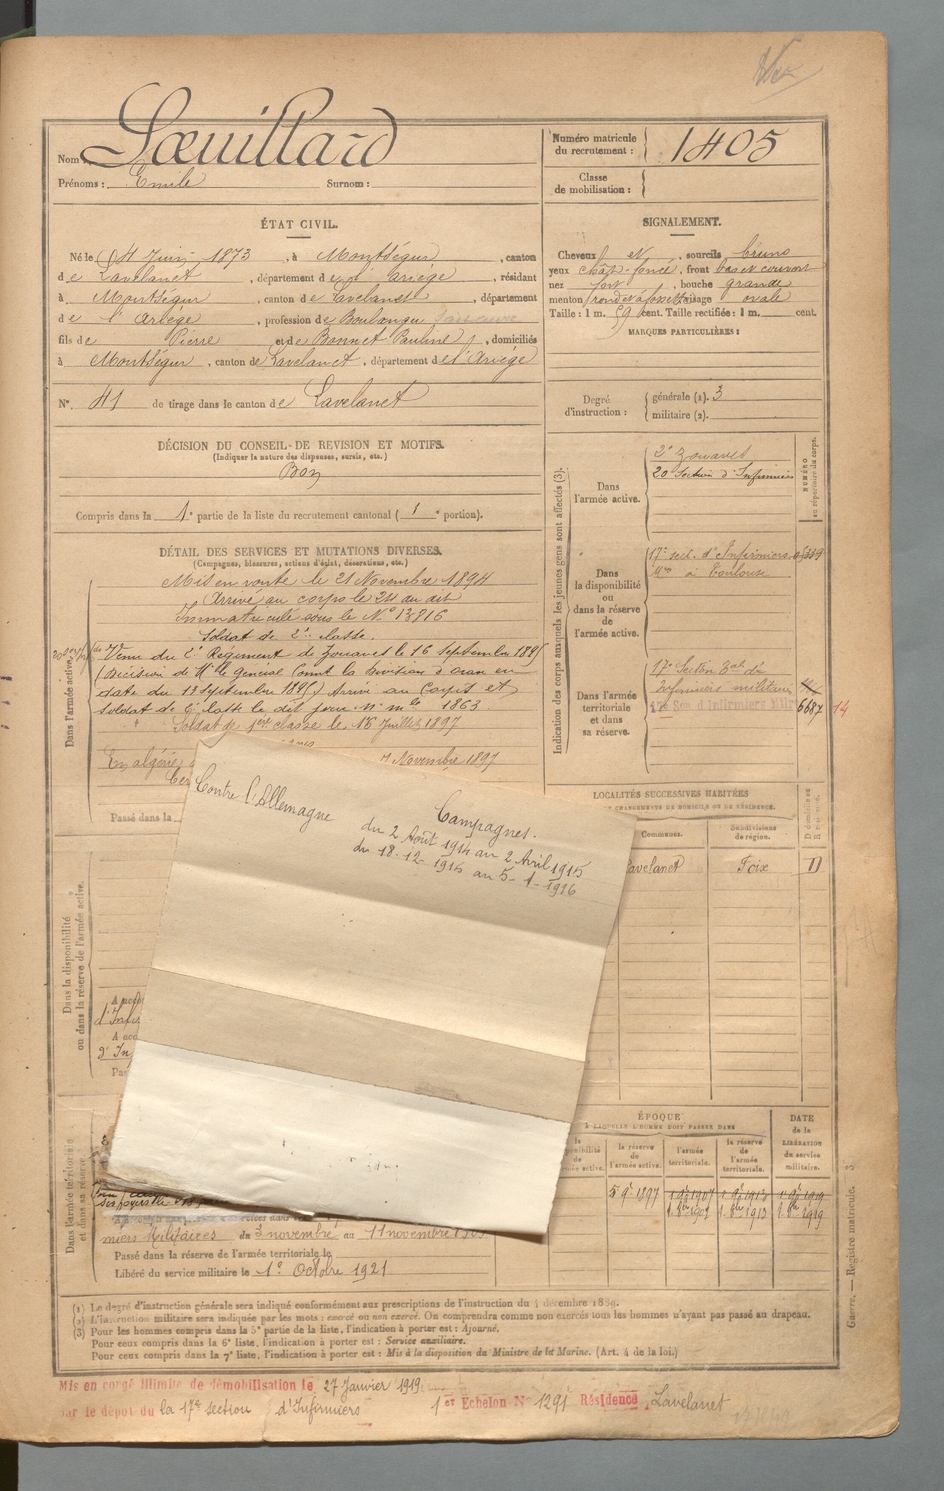 Nom Loeuillard
Prénoms : Emile Surnom :
Numéro matricule du recrutement : 1405
Classe de mobilisation :
ÉTAT CIVIL.
Né le 4 Juin 1873, à Montségur, canton
de Lavelanet, département de l'Ariège, résidant
à Montségur, canton de Lavelanet, département
de l'Ariège, profession de Boulanger
fils de Pierre et de Bonnet Pauline, domiciliés
à Montségur, canton de Lavelanet, département de l'Ariège
N° 41 de tirage dans le canton de Lavelanet
SIGNALEMENT.
Cheveux et sourcils bruns
yeux chât-foncé, front bas et couvert
nez fort, bouche grande
menton rond et à fossette visage ovale
Taille : 1 m. 59 cent. Taille rectifiée : 1 m. cent.
MARQUES PARTICULIÈRES :
Degré d'instruction : générale (1). 3
militaire (2).
DÉCISION DU CONSEIL DE REVISION ET MOTIFS.
(Indiquer la nature des dispenses, sursis, etc.)
Bon
Compris dans la 1e partie de la liste du recrutement cantonal ( 1e portion).
DÉTAIL DES SERVICES ET MUTATIONS DIVERSES.
(Campagnes, blessures, actions d'éclat, décorations, etc.)
Dans l'armée active.
Mis en route le 21 Novembre 1894
Arrivé au corps le 24 du dit
Immatriculé sous le N° 13816
Soldat de 2e classe.
Venu du 2e Régiment de Zouaves le 16 septembre 1895
(Décision de Mr le Général Comt la Division d'Oran en
date du 13 septembre 1895) Arrivé au Corps et
soldat de 2e classe le dit jour n° mle 1863
Soldat de 1ere classe le 15 Juillet 1897
En algérie
7 Novembre 1897
Passé dans la
Contre l'Allemagne
Campagnes.
du 2 Août 1914 au 2 Avril 1915
du 18-12-1915 au 5-1-1916
Dans la disponibilité ou dans la réserve de l'armée active.
Dans l'armée territoriale et dans sa réserve.
miers Militaires du 3 novembre au 11 novembre
Passé dans la réserve de l'armée territoriale le
Libéré du service militaire le 1e Octobre 1921
Indication des corps auxquels les jeunes gens sont affectés (3).
NUMÉRO au répertoire du corps.
Dans l'armée active.
2e Zouaves
20e Section d'Infirmiers
Dans la disponibilité ou dans la réserve de l'armée active.
17e sect. d'Infirmiers
Mres à Toulouse
Dans l'armée territoriale et dans sa réserve.
17e Section Bral de
Infirmiers militaires
17e Sec. d'Infirmiers Milres
6687 14
LOCALITÉS SUCCESSIVES HABITÉES
CHANGEMENTS DE DOMICILE OU DE RÉSIDENCE.
Communes. Subdivisions de région.
Lavelanet Foix D
ÉPOQUE
À LAQUELLE L'HOMME DOIT PASSER DANS
la réserve de l'armée active. l'armée territoriale. la réserve de l'armée territoriale.
DATE de la LIBÉRATION du service militaire.
(1) Le degré d'instruction générale sera indiqué conformément aux prescriptions de l'instruction du 4 décembre 1889.
(2) L'instruction militaire sera indiquée par les mots : exercé ou non exercé. On comprendra comme non exercés tous les hommes n'ayant pas passé au drapeau.
(3) Pour les hommes compris dans la 5e partie de la liste, l'indication à porter est : Ajourné.
Pour ceux compris dans la 6e liste, l'indication à porter est : Service auxiliaire.
Pour ceux compris dans la 7e liste, l'indication à porter est : Mis à la disposition du Ministre de la Marine. (Art. 4 de la loi.)
Guerre. — Registre matricule. 3.
Mis en congé illimité de démobilisation le 27 Janvier 1919
par le dépôt du la 17e section d'Infirmiers
1er Echelon N° 1291 Résidence Lavelanet